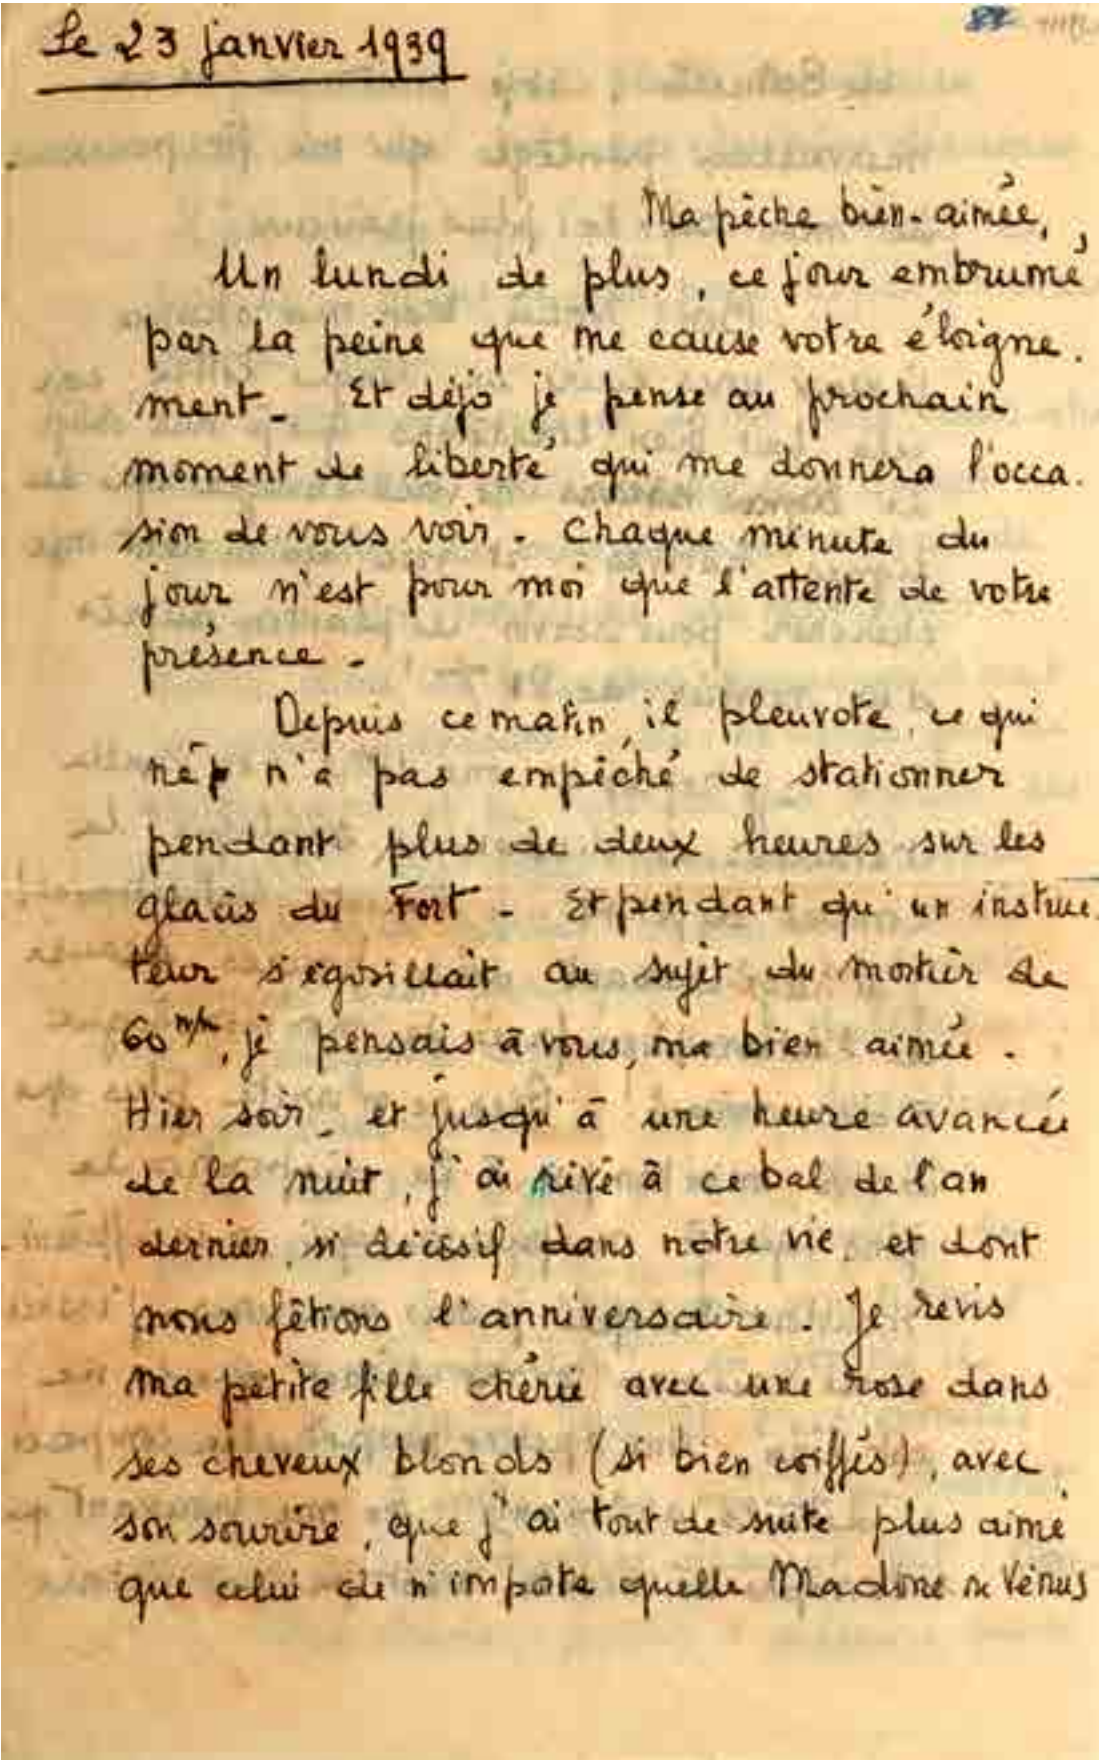 Le 23 janvier 1939
Ma pêche bien-aimée,
Un lundi de plus, ce jour embrumé
par la peine que me cause votre éloigne-
ment. Et déjà je pense au prochain
moment de liberté qui me donnera l'occa-
sion de vous voir. Chaque minute du
jour n'est pour moi que l'attente de votre
présence.
Depuis ce matin, il pleuvote, ce qui
n'a pas empêché de stationner
pendant plus de deux heures sur les
glacis du Fort. Et pendant qu'un instruc-
teur s'égosillait au sujet du mortier de
60 m/m, je pensais à vous, ma bien aimée.
Hier soir, et jusqu'à une heure avancée
de la nuit, j'ai rêvé à ce bal de l'an
dernier, si décisif dans notre vie, et dont
nous fêtions l'anniversaire. Je revis
ma petite fille chérie avec une rose dans
ses cheveux blonds (si bien coiffés), avec
son sourire, que j'ai tout de suite plus aimé
que celui de n'importe quelle Madone ou Vénus